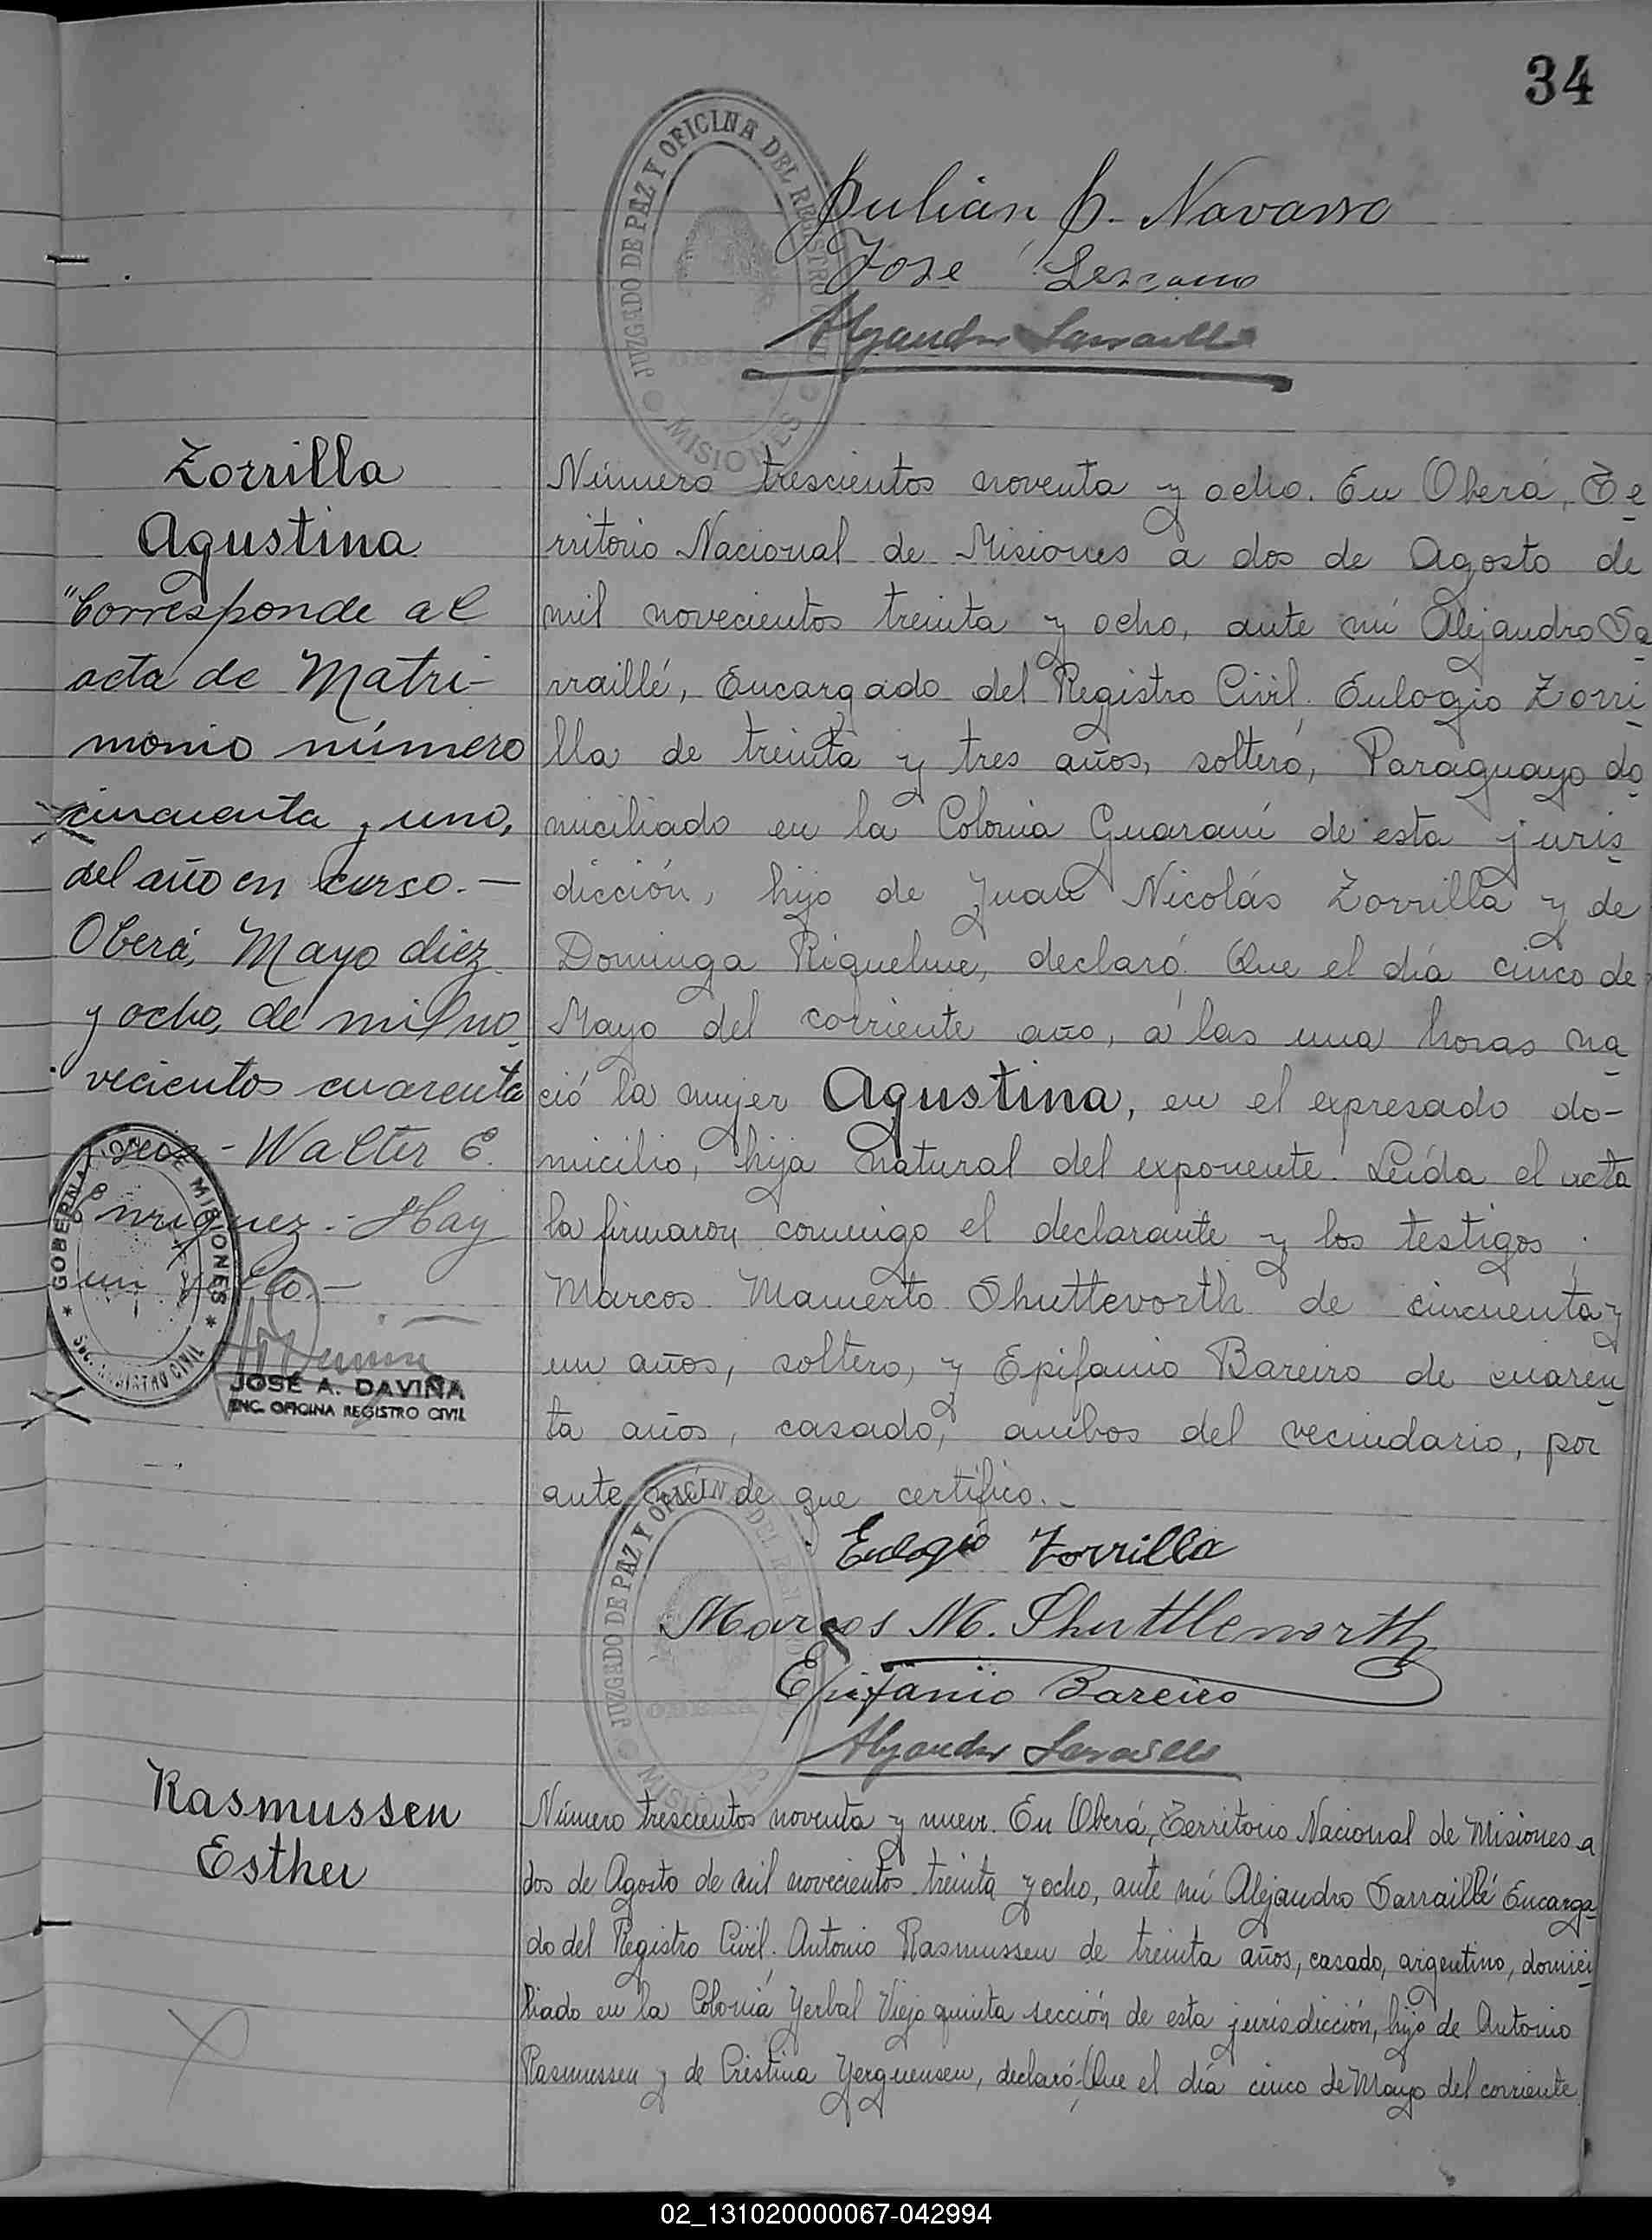 34
JUZGADO DE PAZ Y OFICINA DEL REGISTRO CIVIL
MISIONES
Julian P. Navarro
José Lezcano
Alejandro Sarraillé
Zorrilla
Agustina
"Corresponde al
acta de Matri-
monio número
cincuenta y uno,
del año en curso.-
Oberá, Mayo diez
y ocho, de mil no
vecientos cuarenta
y seis - Walter E.
Enriquez.- Hay
un sello.-
GOBERNACION DE MISIONES
REGISTRO CIVIL
JOSÉ A. DAVIÑA
ENC. OFICINA REGISTRO CIVIL
Número trescientos noventa y ocho. En Oberá, Te
rritorio Nacional de Misiones a dos de Agosto de
mil novecientos treinta y ocho, ante mí Alejandro Sa
rraillé, Encargado del Registro Civil, Eulogio Zorri
lla de treinta y tres años, soltero, Paraguayo do
miciliado en la Colonia Guaraní de esta juris
dicción, hijo de Juan Nicolás Zorrilla y de
Dominga Riquelme, declaró: Que el día cinco de
Mayo del corriente año, a las una horas na
ció la mujer Agustina, en el expresado do-
micilio, hija natural del exponente. Leída el acta
la firmaron conmigo el declarante y los testigos:
Marcos Mamerto Shuttevorth de cincuenta y
un años, soltero, y Epifanio Bareiro de cuaren
ta años, casado, ambos del vecindario, por
ante mí de que certifico.-
JUZGADO DE PAZ Y OFICINA DEL REGISTRO CIVIL
OBERA
MISIONES
Eulogio Zorrilla
Marcos M. Shuttleworth
Epifanio Bareiro
Alejandro Sarraillé
Rasmussen
Esther
Número trescientos noventa y nueve. En Oberá, Territorio Nacional de Misiones a
dos de Agosto de mil novecientos treinta y ocho, ante mí Alejandro Sarraillé Encarga
do del Registro Civil, Antonio Rasmussen de treinta años, casado, argentino, domici
liado en la Colonia Yerbal Viejo quinta sección de esta jurisdicción, hijo de Antonio
Rasmussen y de Cristina Yerguensen, declaró: Que el día cinco de Mayo del corriente
02_131020000067-042994